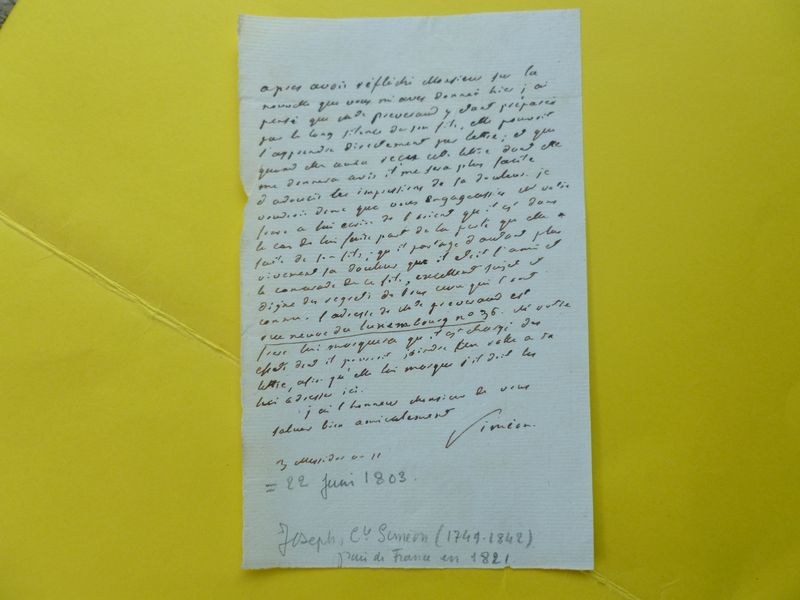 apres avoir réflechi Monsieur sur la
nouvelle que vous m'aves donneé hier j'ai
pensé que Mde preverand y etant préparée
par le long silence de son fils, elle pouvoit
l'apprendre directement par lettre; et que
quand elle aura recu cette lettre dont elle
me donnera avis il me sera plus facile
d'adoucir les impressions de sa douleur. je
voudrois donc que vous engageassiez Mr votre
frere a lui ecrire de l'orient qu'il est dans
le cas de lui faire part de la perte qu'elle a
faite de son fils; qu'il partage d'autant plus
vivement sa douleur que il etoit l'ami et
le camarade de ce fils, excellent sujet et
digne des regrets de tous ceux qui l'ont
connu. l'adresse de Mde preverand est
rue neuve du luxembourg no 36. Mr votre
frere lui marquera qu'il est chargé des
effets dont il pourroit joindre l'etat a sa
lettre, afin qu'elle lui marque s'il doit les
lui adresser ici.
j'ai l'honneur Monsieur de vous
saluer bien amicalement
Simeon.
3 Messidor an 11
= 22 Juin 1803.
Joseph, Cte Siméon (1749-1842)
pair de France en 1821